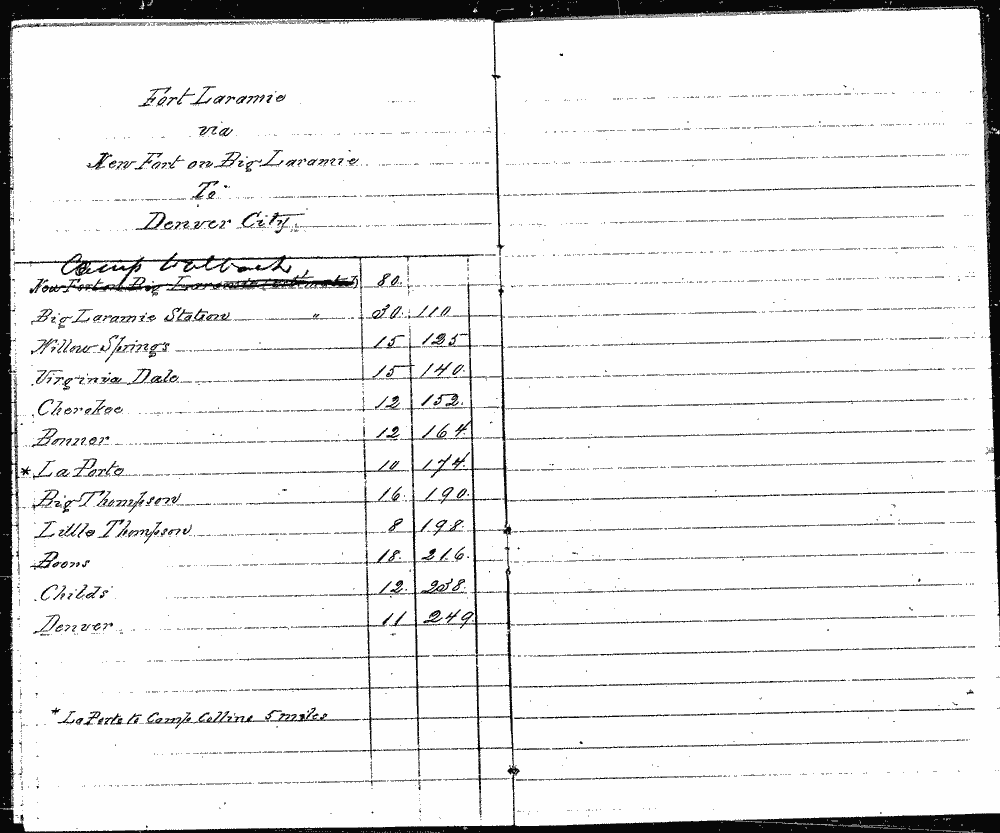 Fort Laramie
via
New Fort on Big Laramie
To
Denver City.
Camp Walbach
New Fort on Big Laramie (estimated) 80.
Big Laramie Station " 30. 110
Willow Springs 15 125
Virginia Dale 15 140.
Cherokee 12 152.
Bonner 12 164.
* La Porte 10 174.
Big Thompson 16. 190.
Little Thompson 8 198.
Boons 18. 216.
Childs 12. 238.
Denver 11 249.
* La Porte to Camp Collins 5 miles